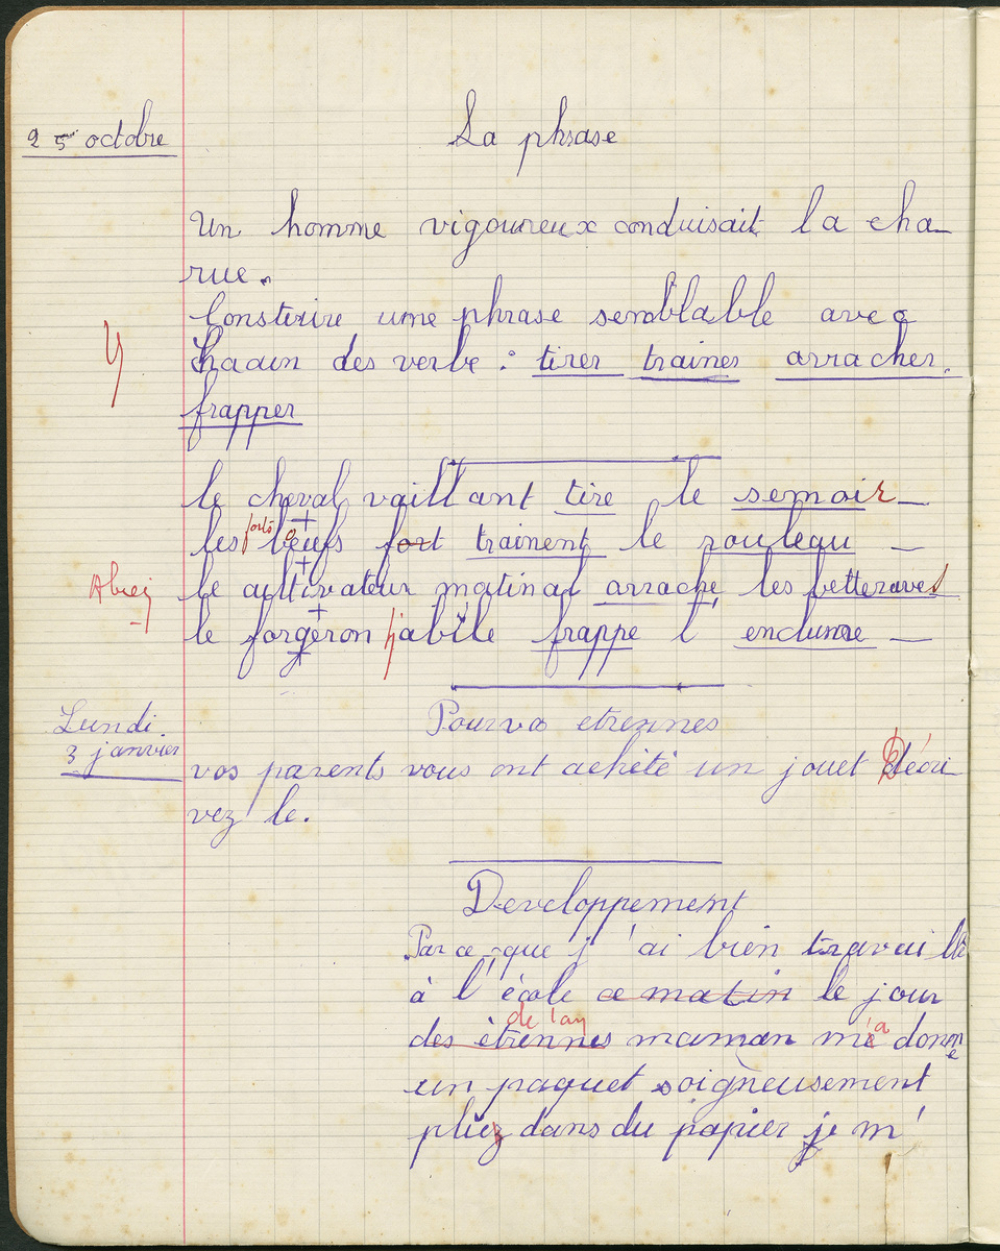 25 octobre
La phrase
Un homme vigoureux conduisait la cha-
rue.
Construire une phrase semblable avec
chacun des verbe : tirer trainer arracher.
frapper
le cheval vaillant tire le semoir -
les forts bœufs fort trainent le rouleau -
le cultivateur matinal arrache les betteraves
le forgeron habile frappe l'enclume -
Lundi.
3 janvier
Pour vos etrennes
vos parents vous ont acheté un jouet Décri
vez le.
Developpement
Parce-que j'ai bien travaillé
à l'école ce matin le jour
de l'an
des étrennes maman m'a donné
un paquet soigneusement
pliez dans du papier je m'